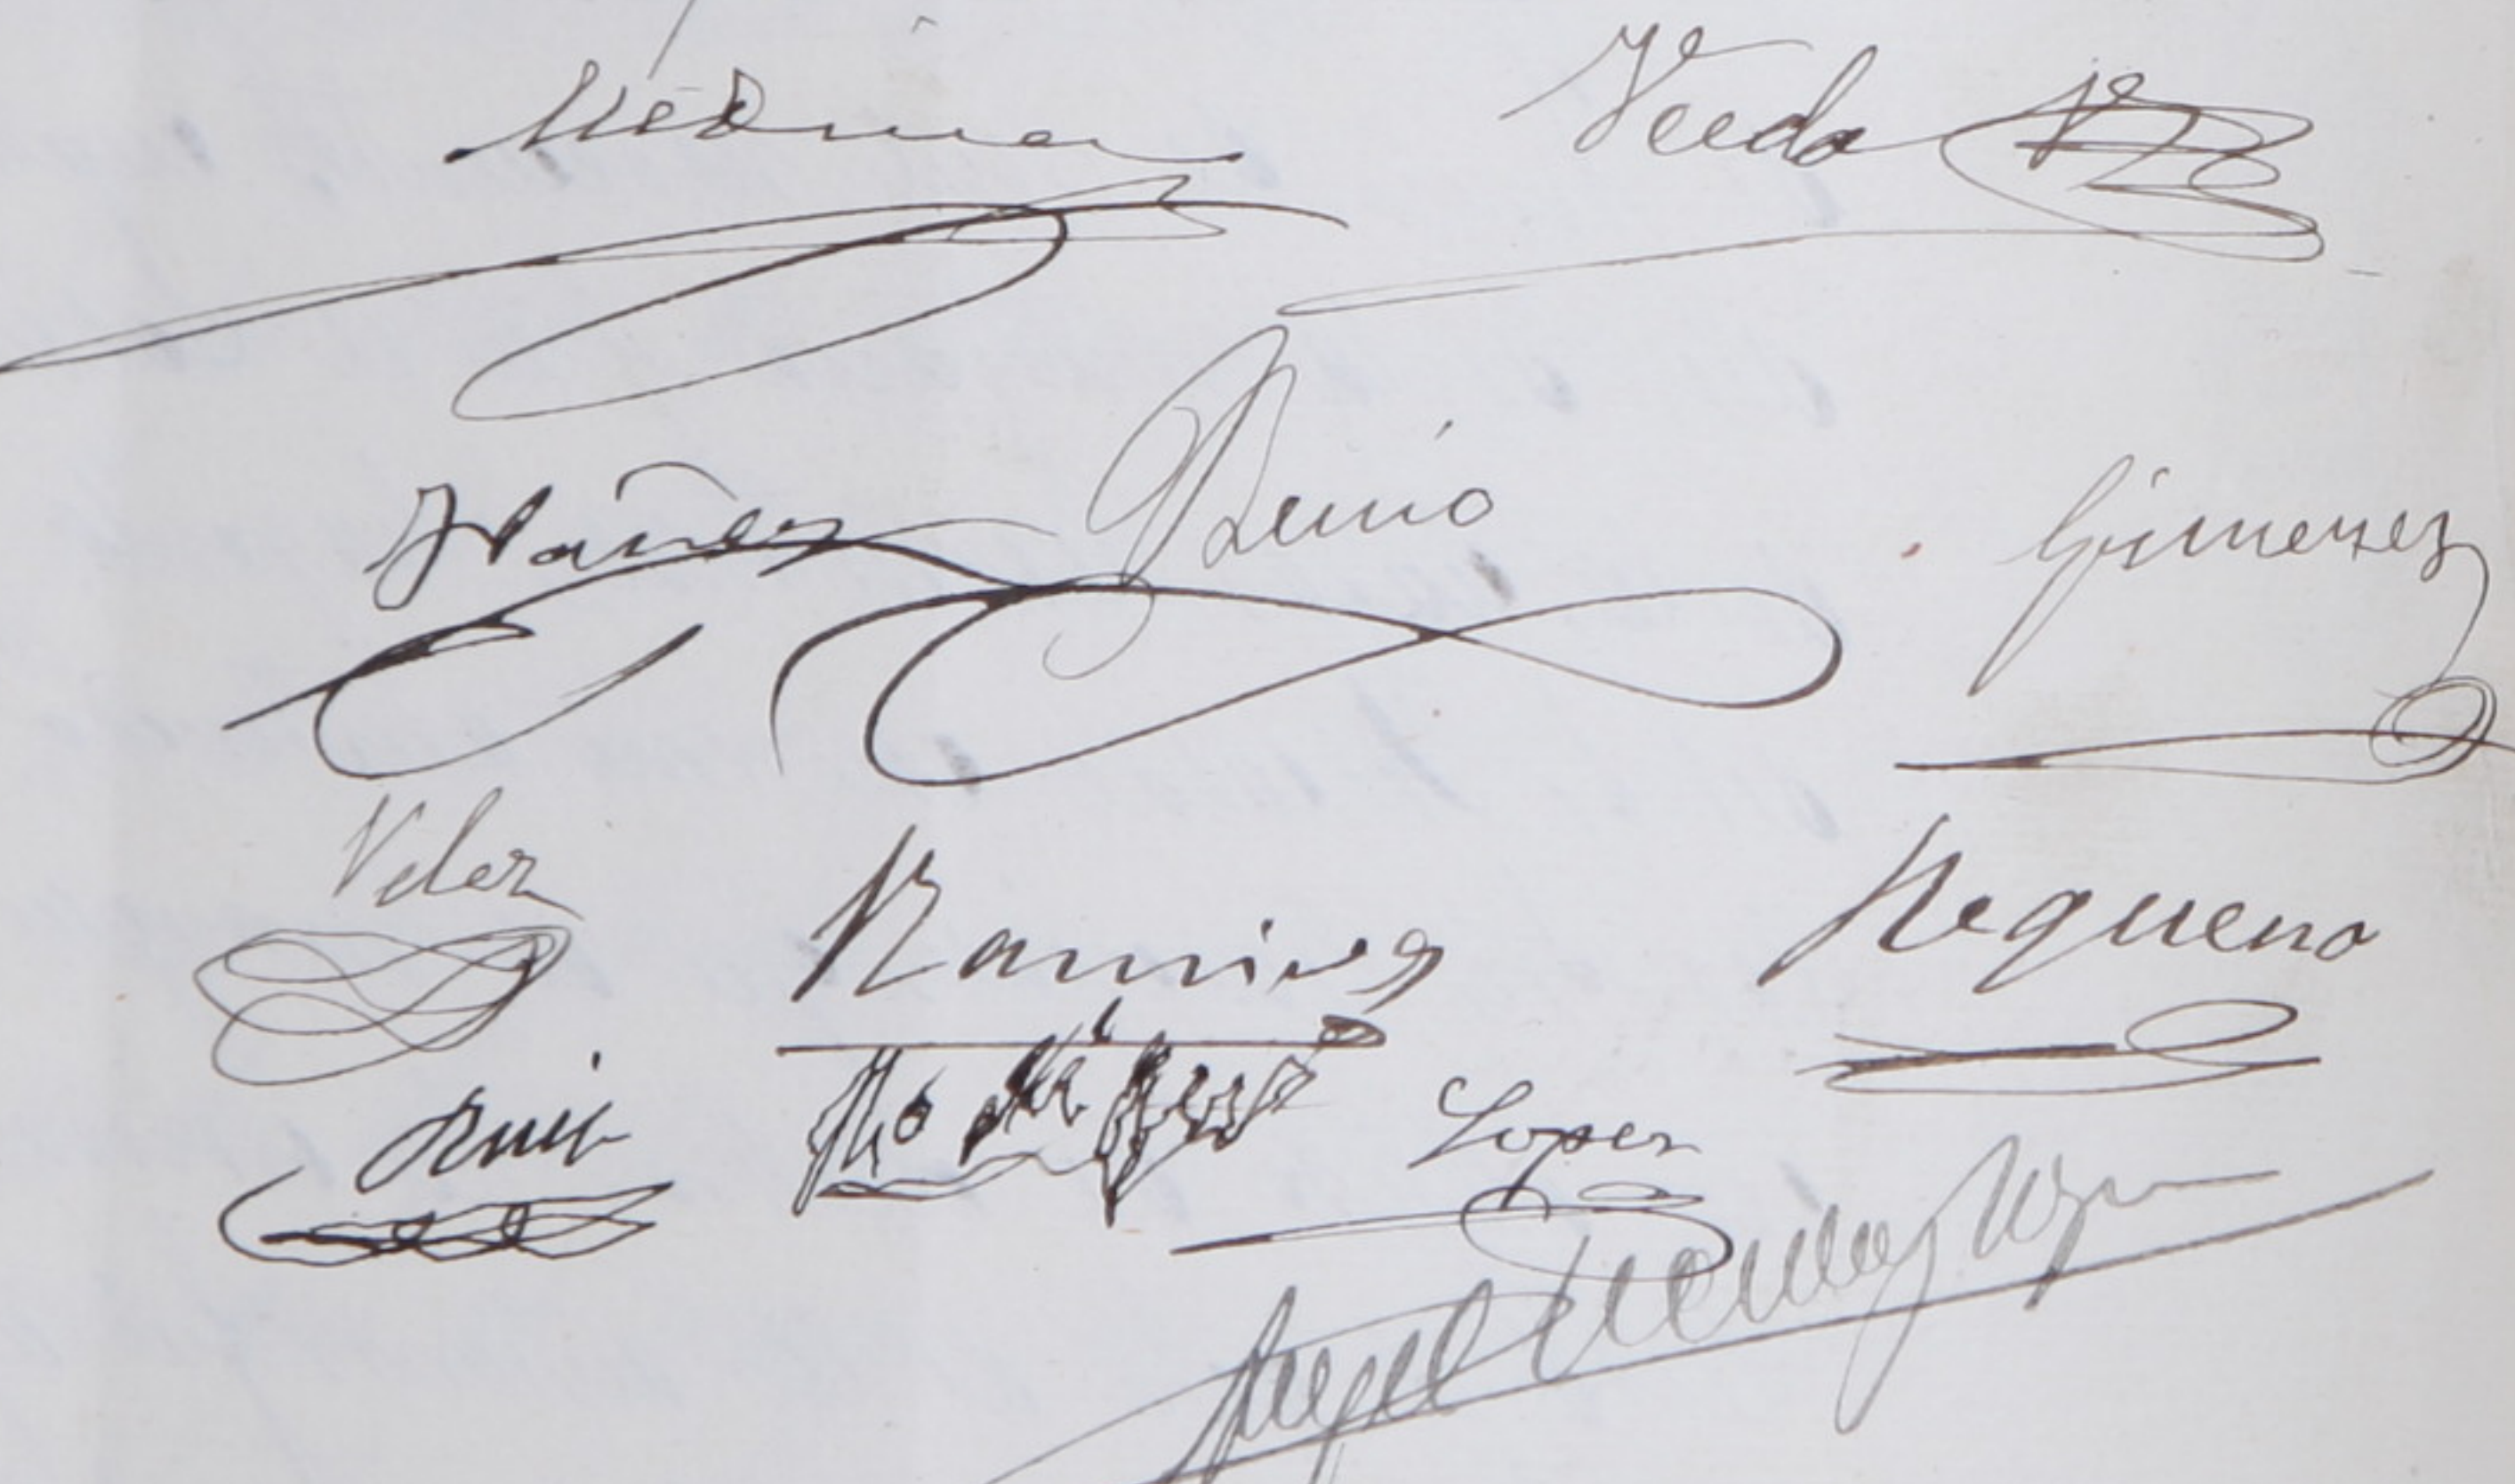 Medina Veeda
Ibáñez Senió Gimenez
Velez Ramirez Requeno
Ruiz Rodriguez Lopez
Angel